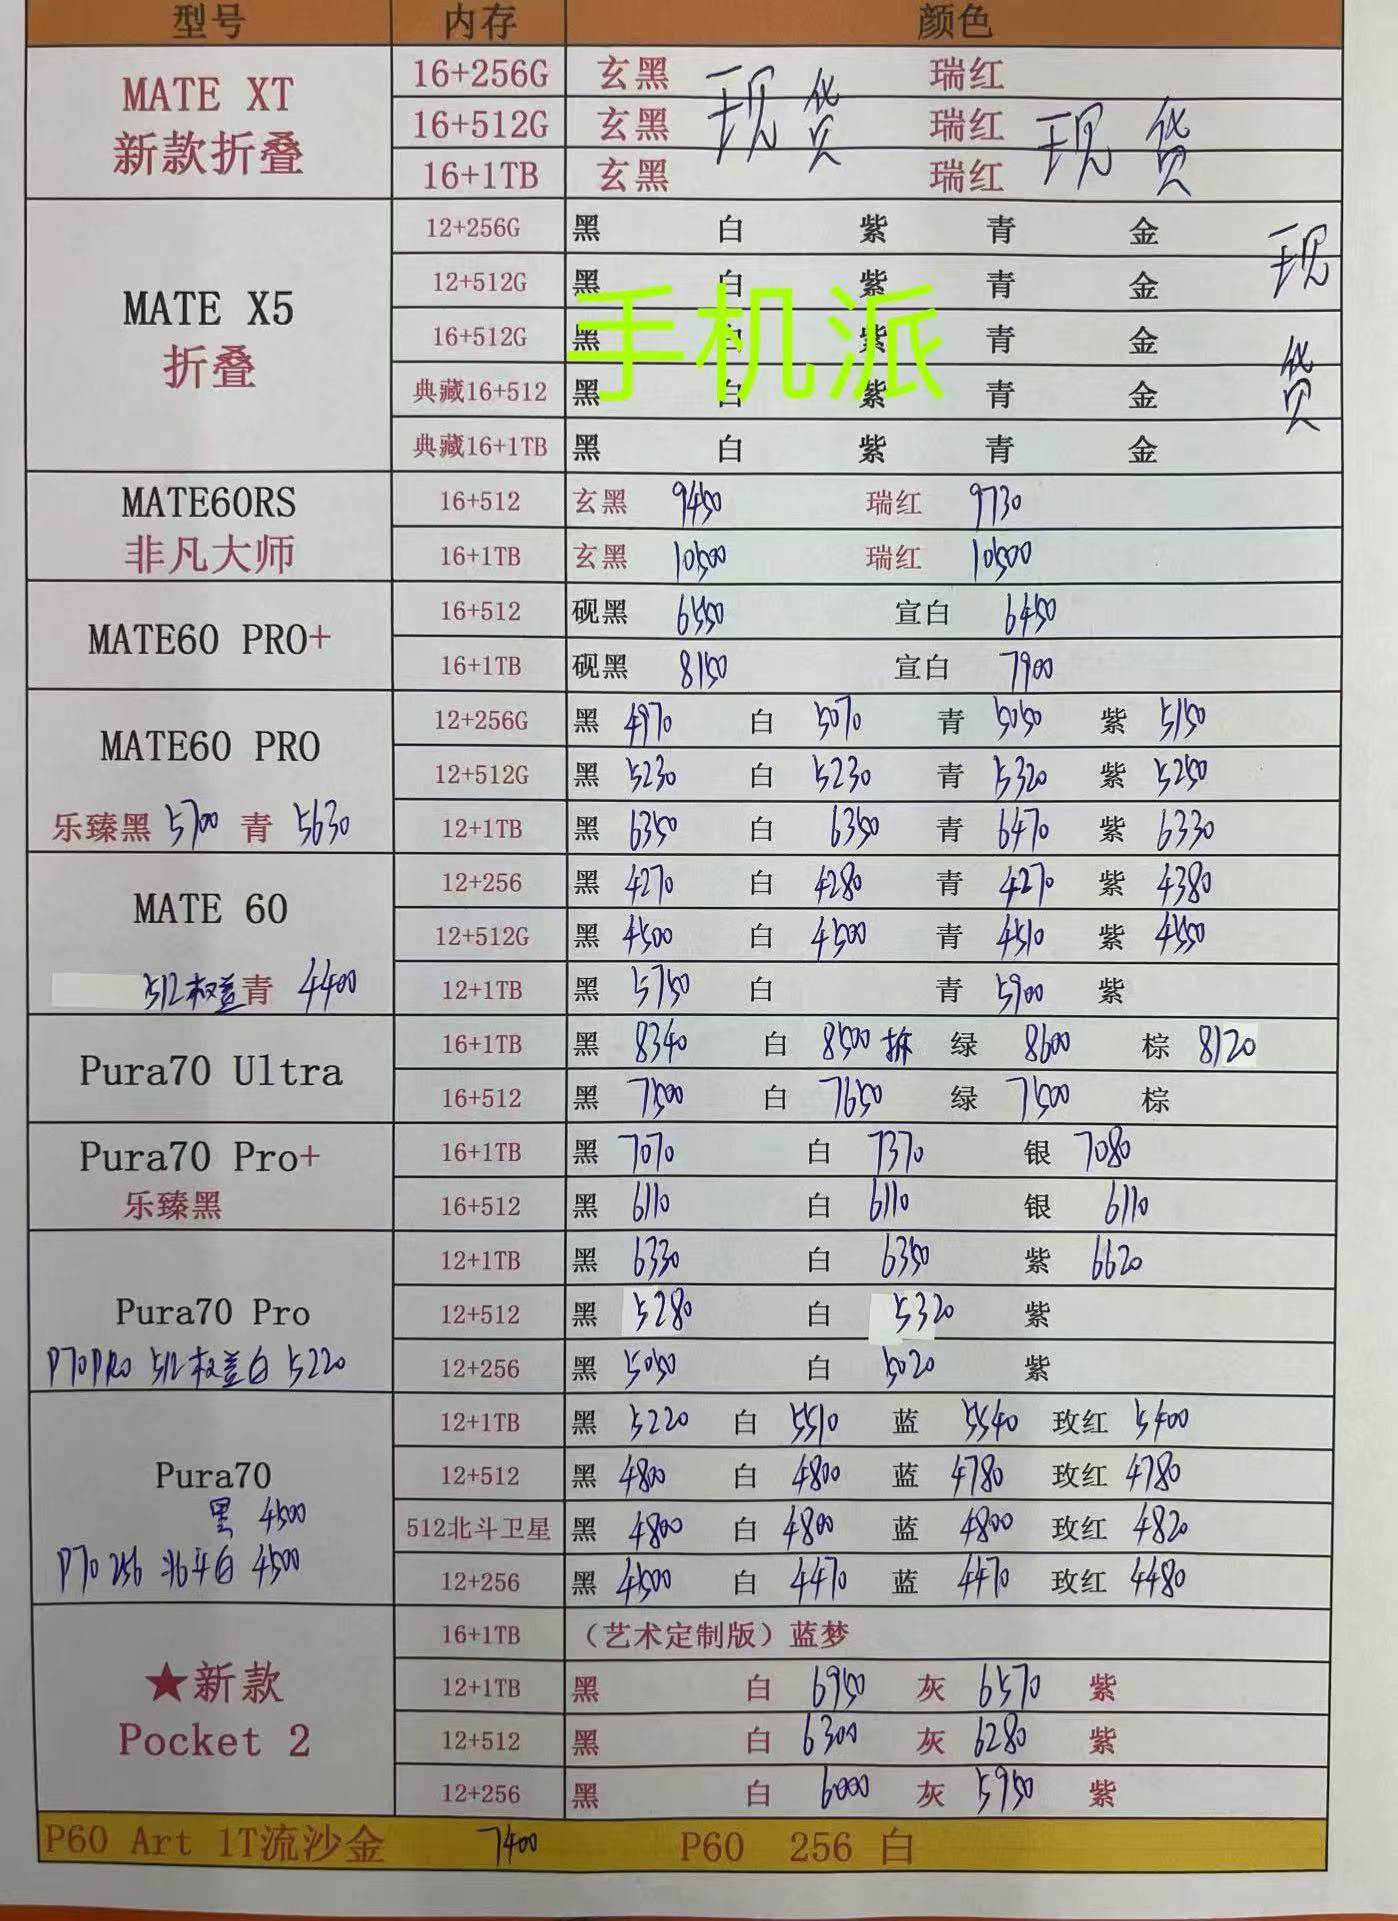 型号 内存 颜色
MATE XT 新款折叠
16+256G 玄黑 瑞红
16+512G 玄黑 现货 瑞红 现货
16+1TB 玄黑 瑞红
MATE X5 折叠
12+256G 黑 白 紫 青 金 现货
12+512G 黑 白 紫 青 金
手机派
16+512G 黑 白 紫 青 金
典藏16+512 黑 白 紫 青 金
典藏16+1TB 黑 白 紫 青 金
MATE60RS 非凡大师
16+512 玄黑 9450 瑞红 9730
16+1TB 玄黑 10500 瑞红 10500
MATE60 PRO+
16+512 砚黑 6550 宣白 6450
16+1TB 砚黑 8150 宣白 7900
MATE60 PRO
12+256G 黑 4970 白 5070 青 5050 紫 5150
12+512G 黑 5230 白 5230 青 5320 紫 5250
乐臻黑 5700 青 5630
12+1TB 黑 6350 白 6350 青 6470 紫 6330
MATE 60
12+256 黑 4270 白 4280 青 4270 紫 4380
12+512G 黑 4500 白 4500 青 4510 紫 4550
512权益青 4400
12+1TB 黑 5750 白 青 5900 紫
Pura70 Ultra
16+1TB 黑 8340 白 8500拆 绿 8600 棕 8120
16+512 黑 7500 白 7650 绿 7500 棕
Pura70 Pro+
乐臻黑
16+1TB 黑 7070 白 7370 银 7080
16+512 黑 6110 白 6110 银 6110
Pura70 Pro
12+1TB 黑 6330 白 6350 紫 6620
12+512 黑 5280 白 5320 紫
P70PRO 512权益白 5220
12+256 黑 5050 白 5020 紫
Pura70
12+1TB 黑 5220 白 5510 蓝 5540 玫红 5400
12+512 黑 4800 白 4800 蓝 4780 玫红 4780
黑 4500
512北斗卫星 黑 4800 白 4800 蓝 4800 玫红 4820
P70 256 北斗白 4500
12+256 黑 4500 白 4470 蓝 4470 玫红 4480
★新款
Pocket 2
16+1TB (艺术定制版)蓝梦
12+1TB 黑 白 6950 灰 6570 紫
12+512 黑 白 6300 灰 6280 紫
12+256 黑 白 6000 灰 5950 紫
P60 Art 1T流沙金 7400 P60 256 白